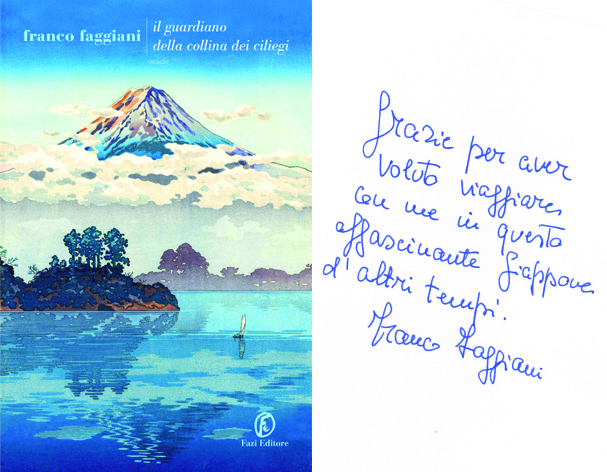 franco faggiani
il guardiano
della collina dei ciliegi
Fazi Editore
Grazie per aver
voluto viaggiare
con me in questo
affascinante Giappone
d'altri tempi.
Franco Faggiani